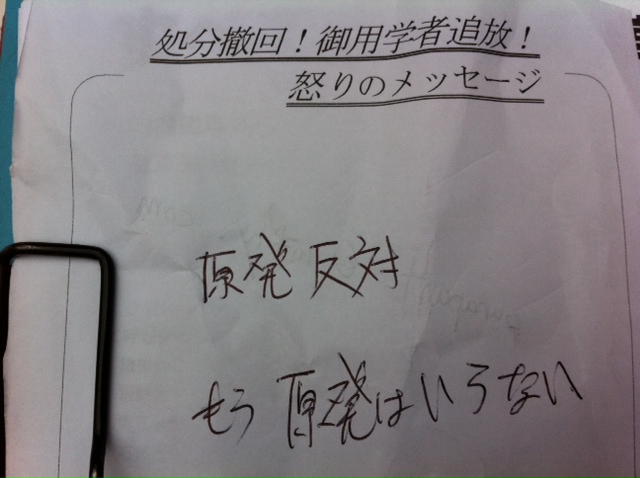 処分撤回！御用学者追放！
怒りのメッセージ
原発反対
もう原発はいらない